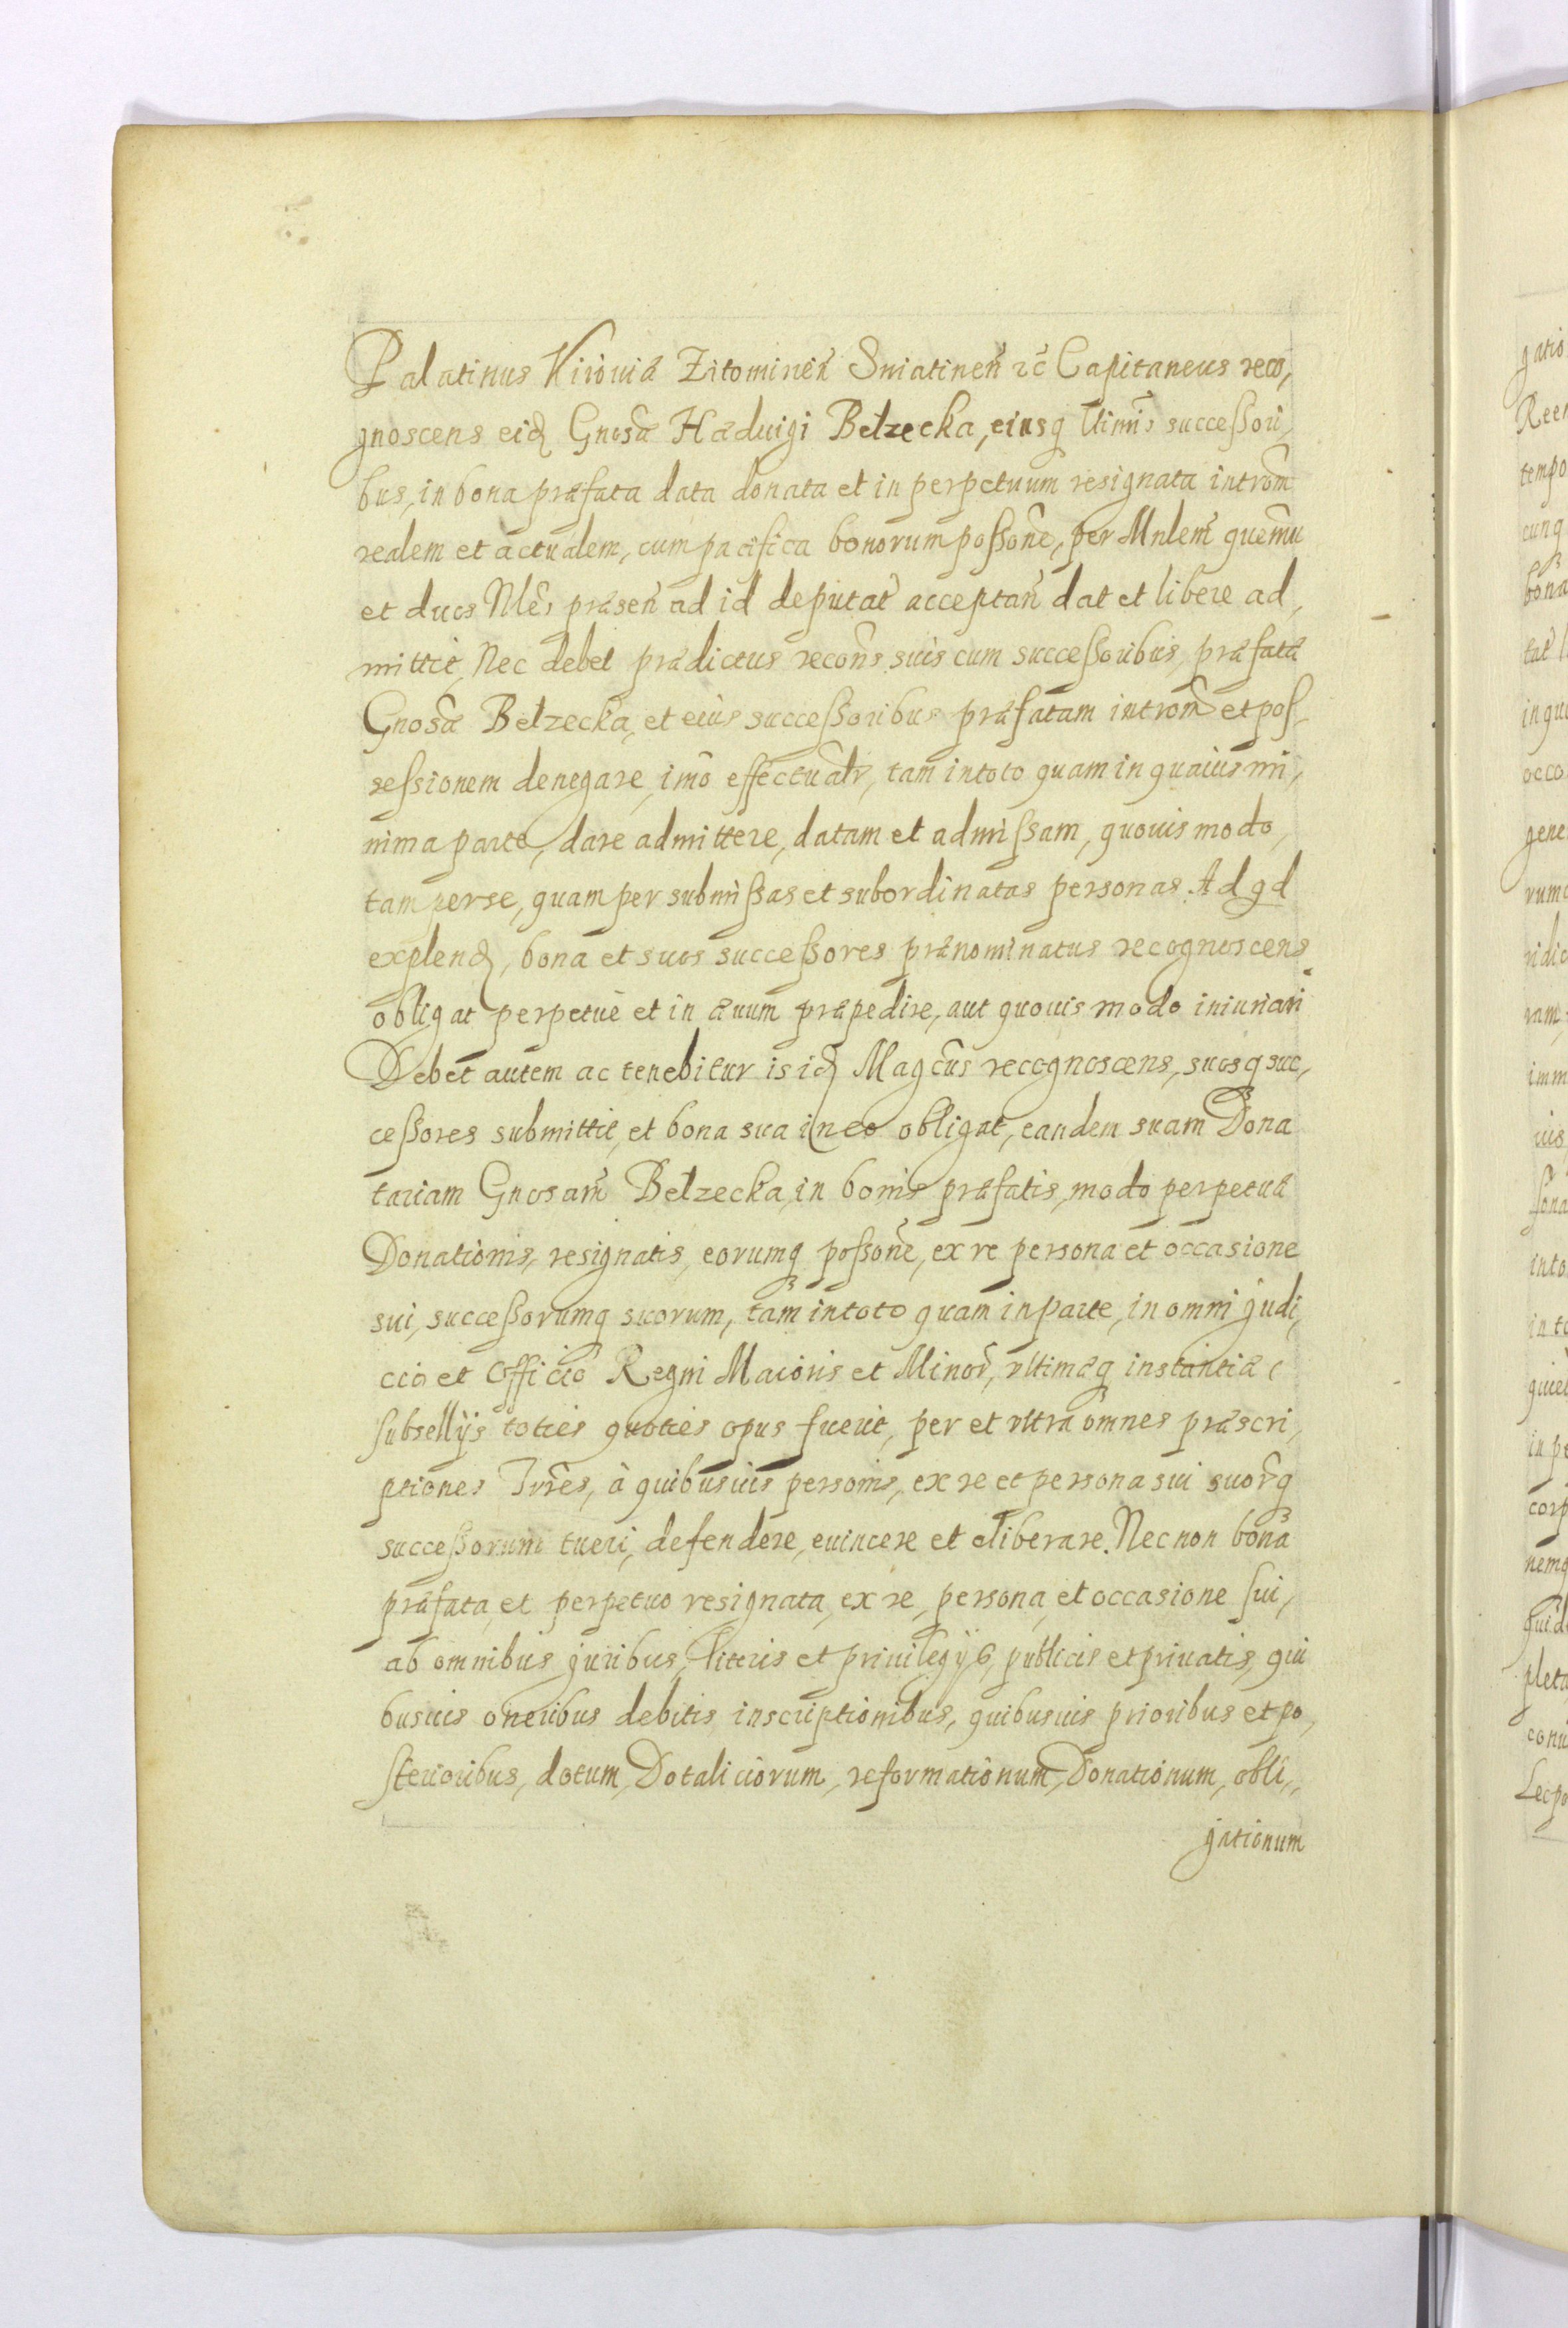 Palatinus Kiiouiæ Zitominen̄ Sniatinen̄ &c̄ Capitaneus reco,
gnoscens eid Gnosæ Hæduigi Belzecka, eiusq ltimis successori,
bus, in bona præfata data donata et in perpetuum resignata introm̄
realem et actualem, cum pacifica bonorum possone, per Mnlem quemu
et duos Nles præsen̄ ad id deputat acceptan̄ dat et libere ad,
mittit, Nec debet prædictus recons suis cum successoribus, præfatæ
Gnosæ Belzecka, et eius successoribus præfatam introm̄ et pos,
sessionem denegare, imo effectualr, tam in toto quam in quauis mi,
nima parte, dare admittere, datam et admissam, quouis modo,
tam per se, quam per submissas et subordinatas personas. Ad qd
explend, bona et suos successores prænominatus recognoscens
obligat perpetuè et in æuum præpedire, aut quouis modo iniuriari
Debet autem ac tenebitur is id Magcus recognoscens, suosq suc,
cessores submittit, et bona sua in eo obligat, eandem suam Dona
tariam Gnosam Belzecka, in bonis præfatis, modo perpetuæ
Donationis, resignatis, eorumq possone, ex re persona et occasione
sui, successorumq suorum, tam in toto quam in parte, in omni judi,
cio et Officio Regni Maioris et Minor, vltimæq instantiæ
subsellijs toties quoties opus fuerit, per et vltra omnes præscri,
ptiones Trres, à quibusuis personis, ex re et persona sui suorq
successorum tueri, defendere, euincere et eliberare. Nec non bona
præfata, et perpetuo resignata, ex re, persona, et occasione sui,
ab omnibus juribus, literis et priuilegijs, publicis et priuatis, qui
busuis oneribus debitis, inscriptionibus, quibusuis prioribus et po,
sterioribus, dotum, Dotaliciorum, reformationum, Donationum, obli,,
gationum